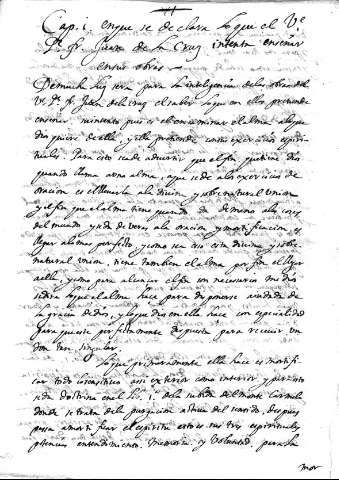 Cap. i. en que se declara lo que el Ve.
P. fr. Juan de la Cruz intenta enseñar
en sus obras
De mucha luz sera para la inteligencia de las obras del
V. P. fr. Juan de la cruz el saber lo que en ellas pretende
enseñar, su intento pues es el encaminar el alma a lo que
dios quiere de ella, y ella pretende con los exercicios espiri-
tuales. Para esto se ha de advertir que el fin que tiene Dios
quando llama a una alma, a que se de a los exercicios de
oracion es el llevarla a la divina y sobrenatural union
y el fin que el alma tiene quando da de mano a las cosas
del mundo, y se da de veras a la oracion, y mortificacion es
llegar a lo mas perfecto, y como sea esto esta divina y sobre
natural union, tiene tambien el alma por fin el llegar
a ella, y como para alcanzar el fin son necesarios medios
lo que el alma hace para disponerse ayudada de
la gracia de dios, y lo que dios en ella hace con especialidad
para que este perfectamente dispuesta para recevir un
don tan singular.
Lo que primeramente ella hace es mortifi-
car todo lo sensitivo assi exterior como interior y para esto
da doctrina en el lib. 1º de la subida del monte Carmelo
donde se trata de la purgacion activa del sentido, despues
passa a mortificar el espiritu esto es sus tres espirituales
potencias entendimiento, Memoria, y Voluntad, para la
mor